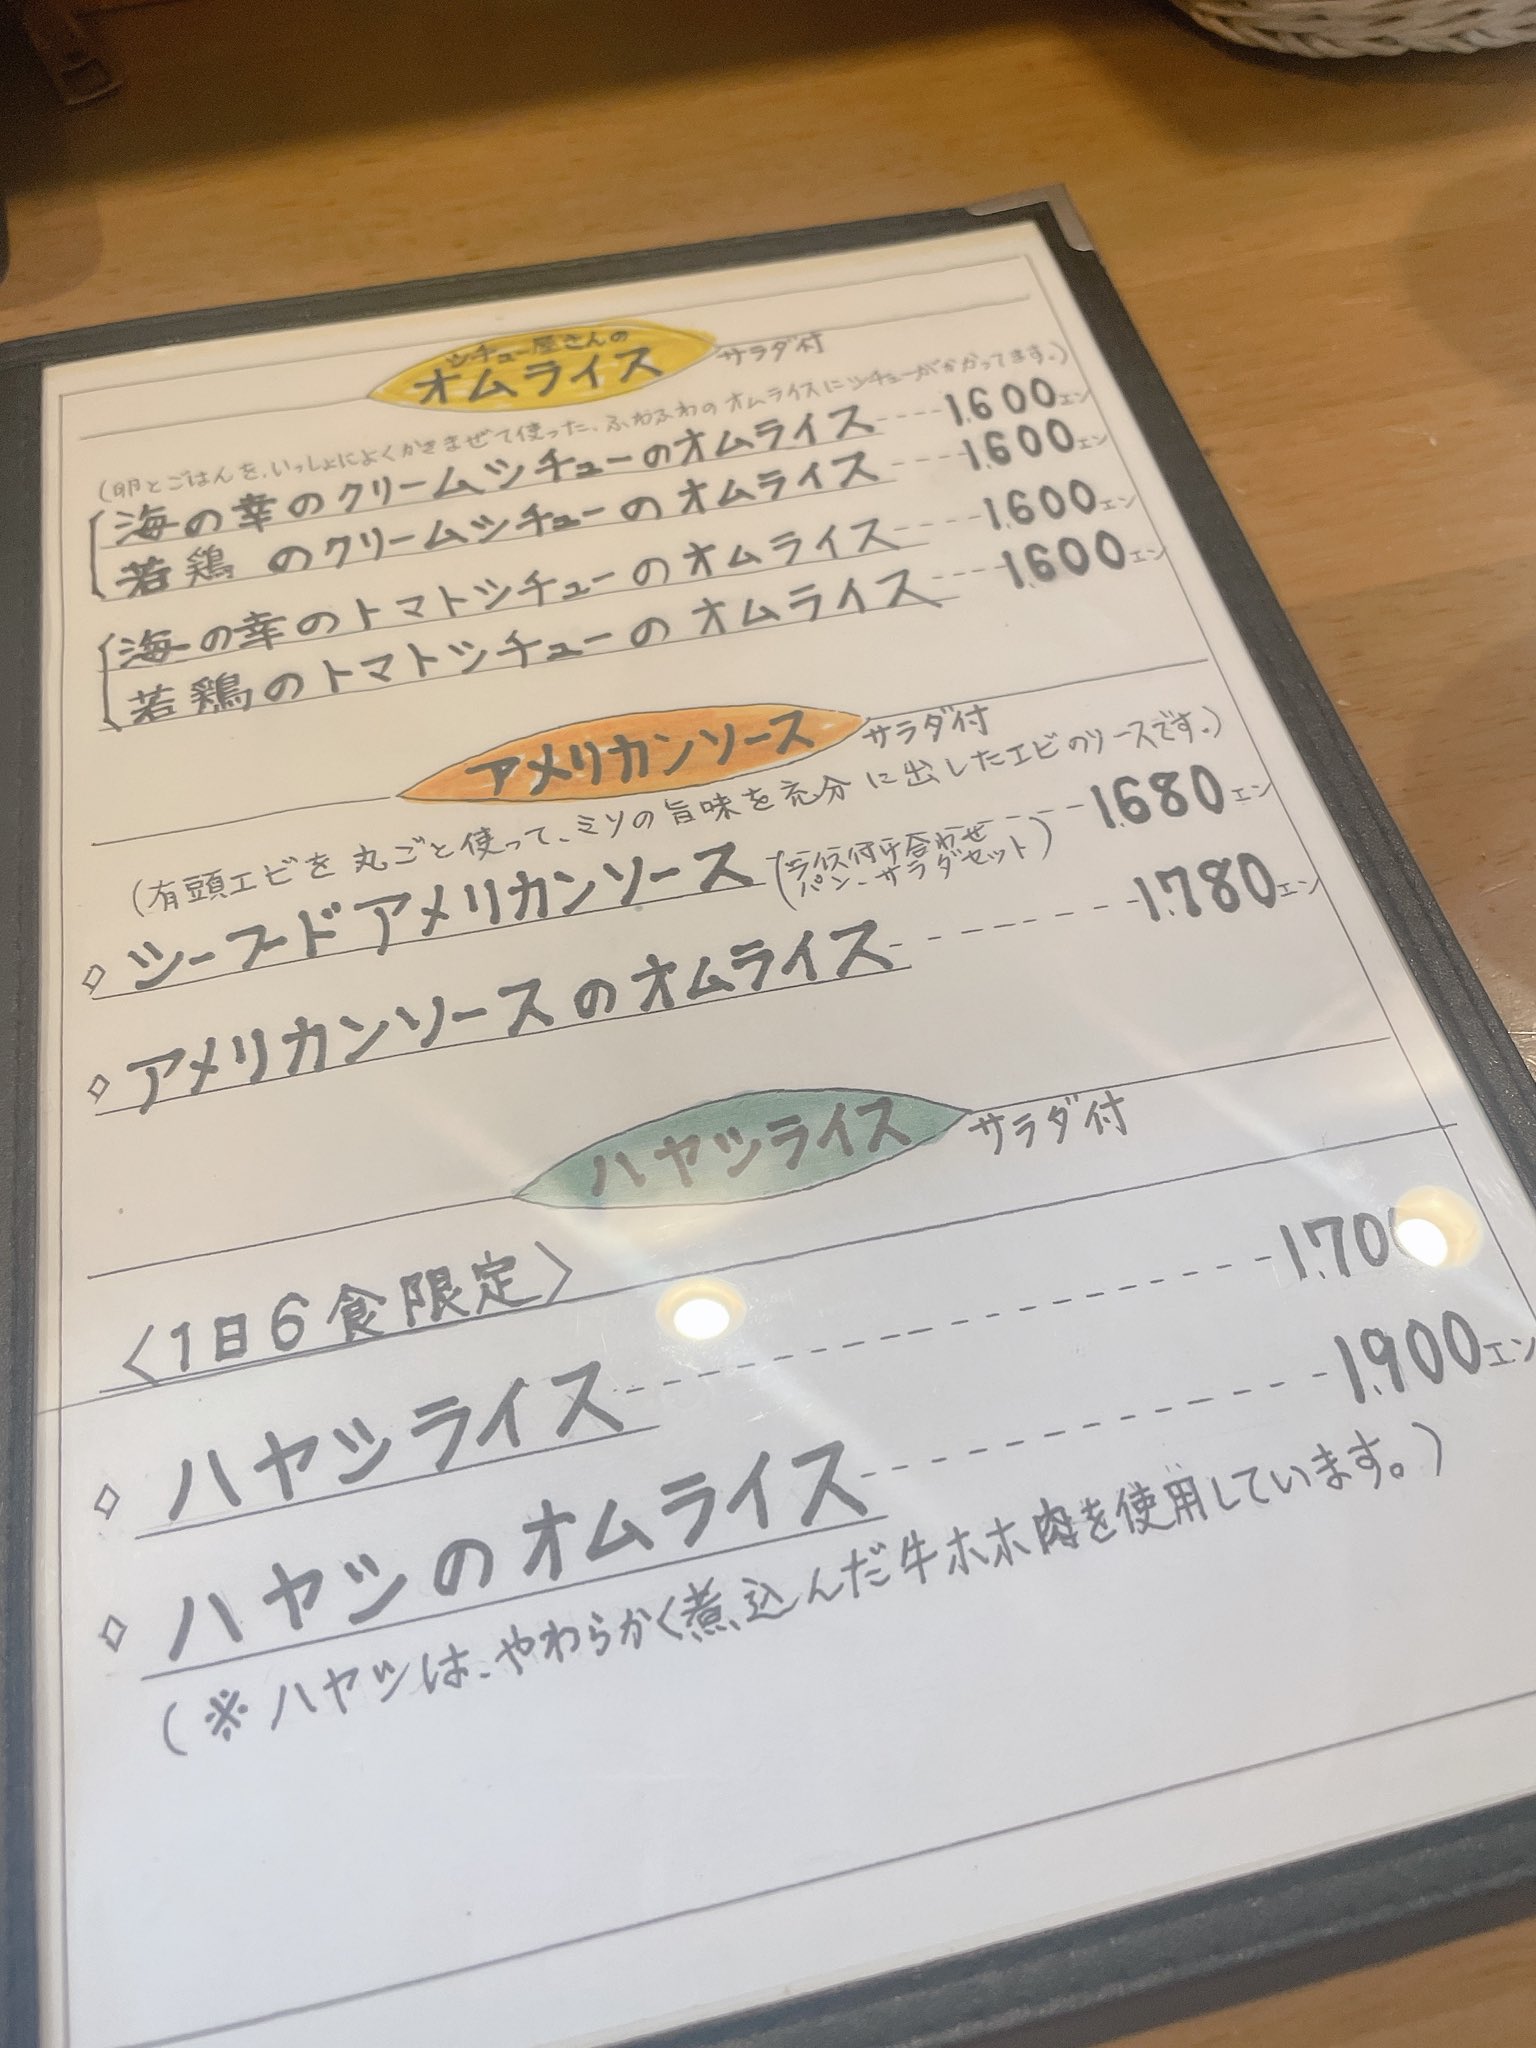 シチュー屋さんの
オムライス サラダ付
(卵とごはんを、いっしょによくかきまぜて使った、ふわふわのオムライスにシチューがかかってます。)
海の幸のクリームシチューのオムライス----1.600エン
若鶏のクリームシチューのオムライス----1.600エン
海の幸のトマトシチューのオムライス----1.600エン
若鶏のトマトシチューのオムライス----1.600エン
アメリカンソース サラダ付
(有頭エビを丸ごと使って、ミソの旨味を充分に出したエビのソースです。)
◇シーフードアメリカンソース(ライス付け合わせ パン、サラダセット)----1.680エン
◇アメリカンソースのオムライス--------1.780エン
ハヤシライス サラダ付
〈1日6食限定〉
◇ハヤシライス----------------1.70
◇ハヤシのオムライス------------1.900エン
(※ハヤシは、やわらかく煮込んだ牛ホホ肉を使用しています。)